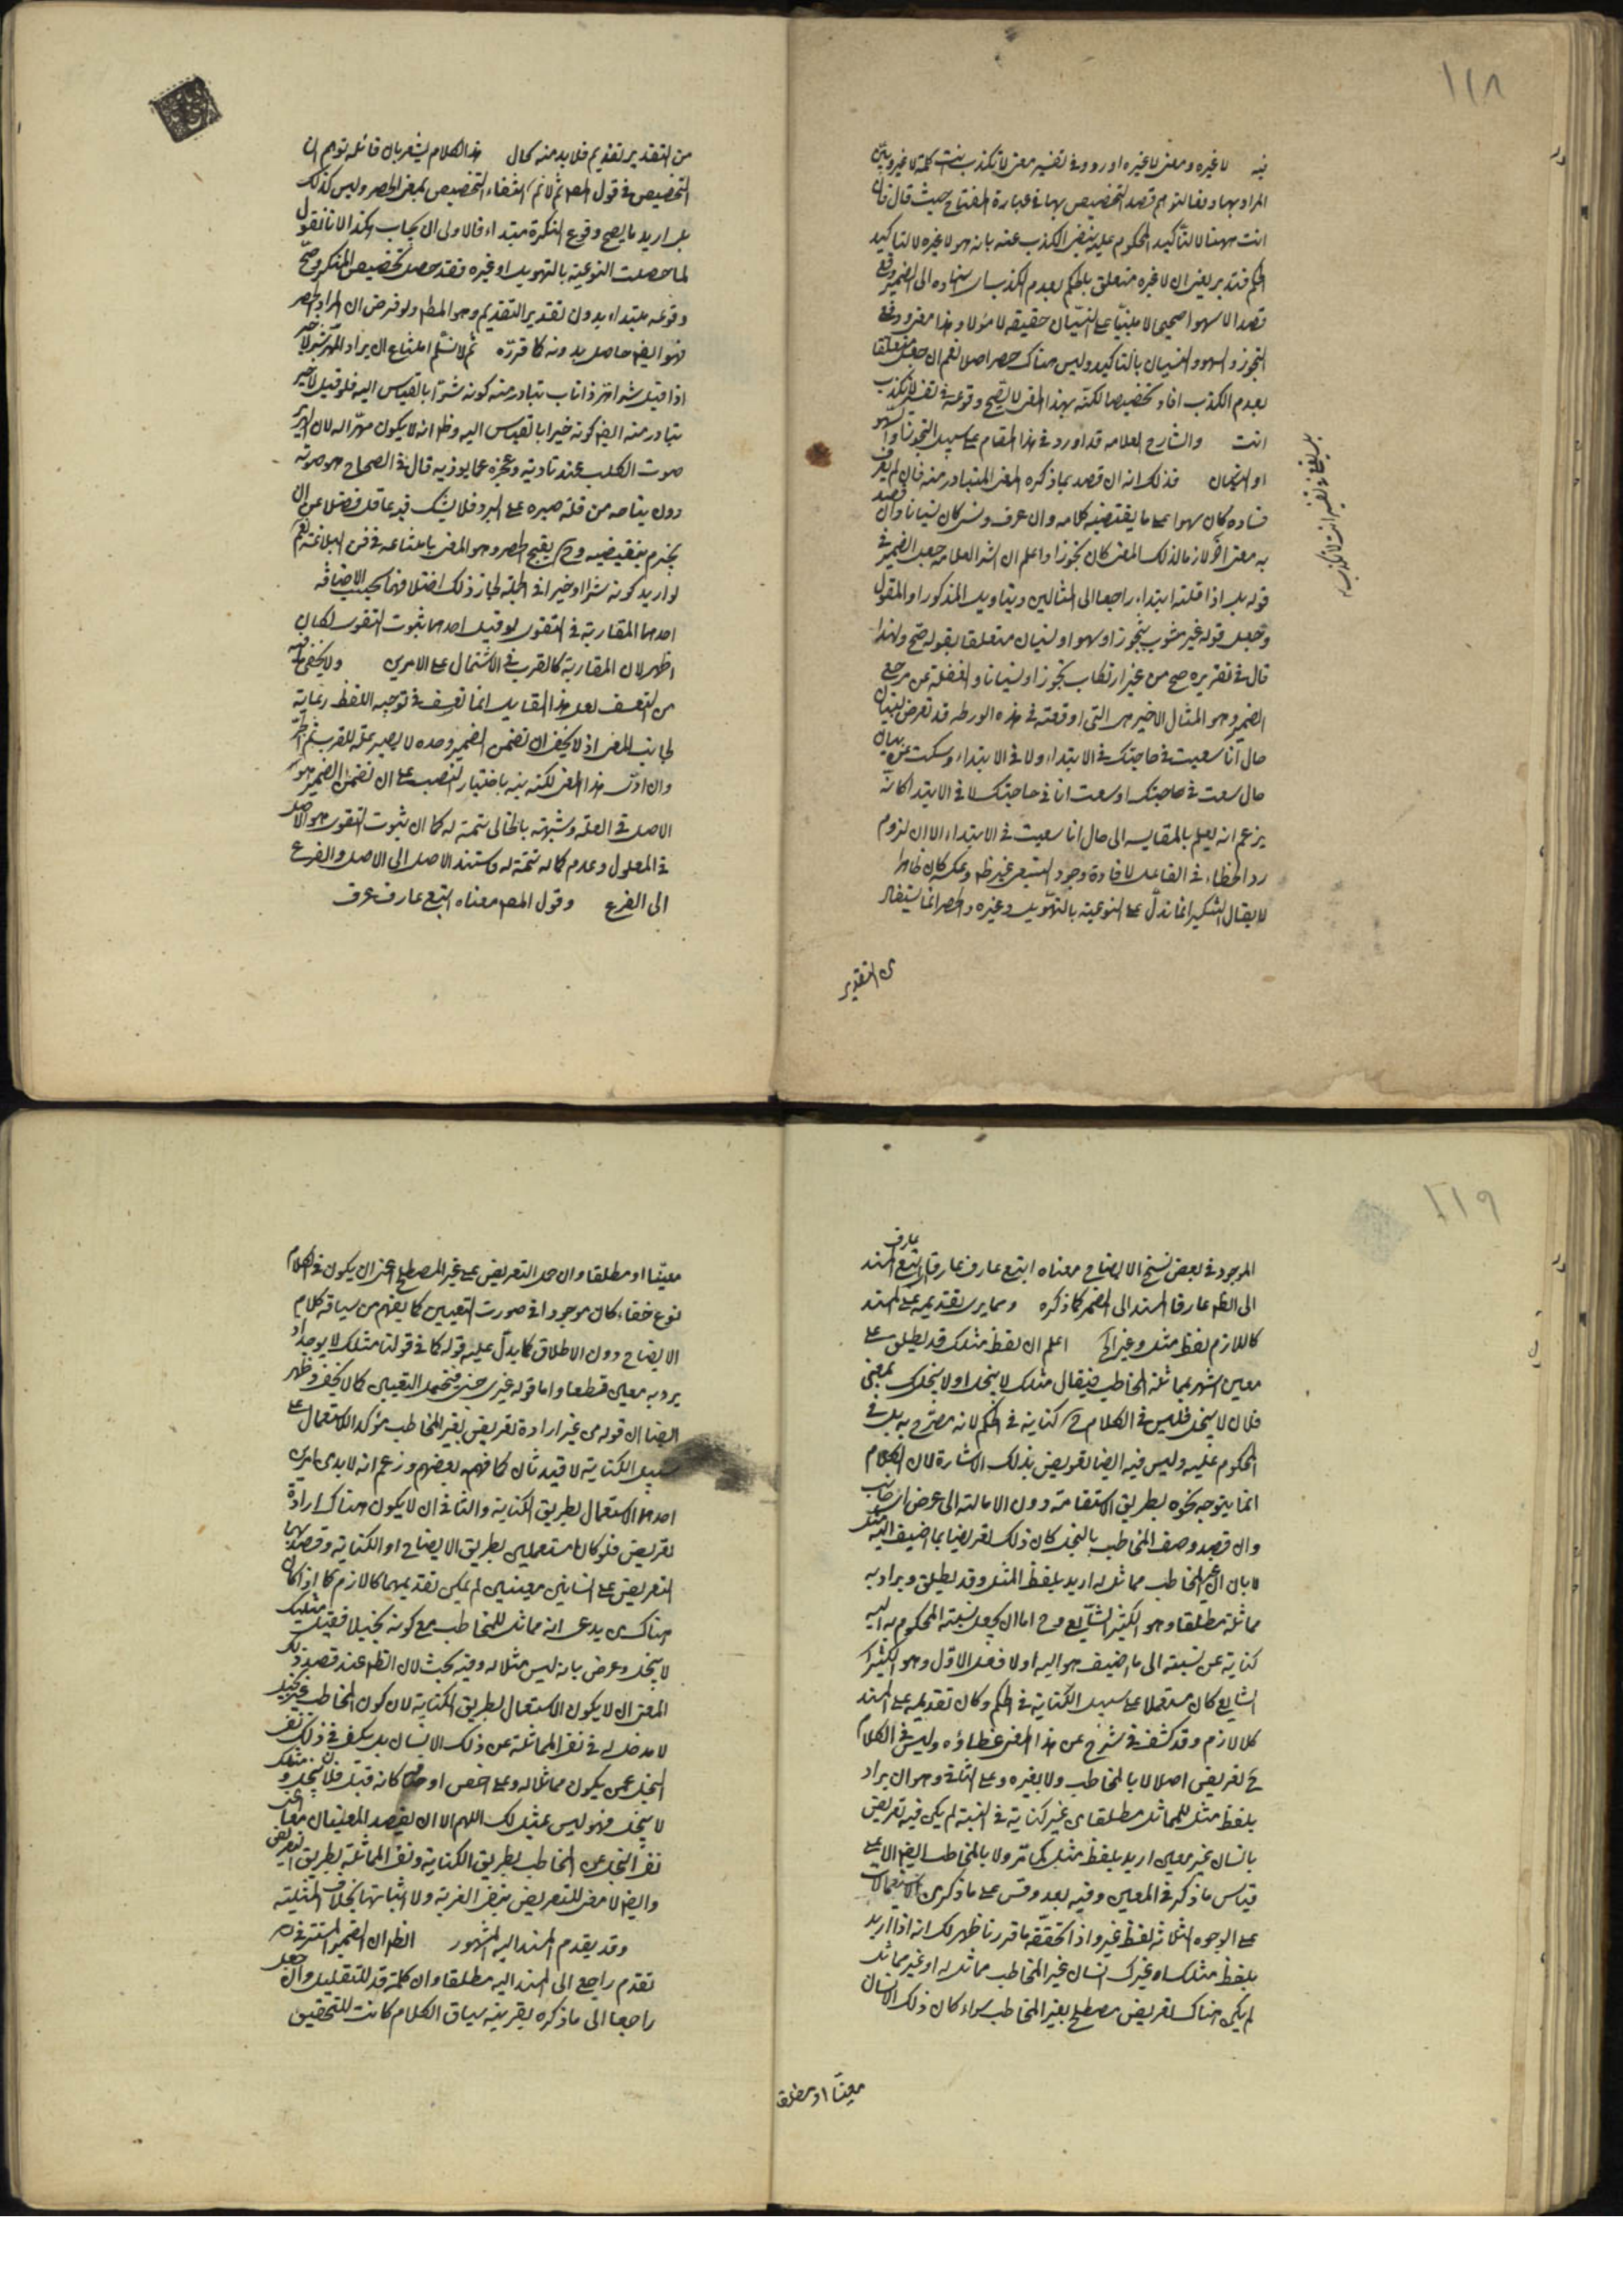 ١١٨
فيه لا غيره ومعنى لا غيره اورد في تفسير معنى لا تكذب انت كلمة لا غير وبيّن
المراد بها دفعا لتوهم قصد التخصيص بها في عبارة المفتاح حيث قال فان
انت ههنا لتأكيد المحكوم عليه بنفى الكذب عنه بانه هو لا غيره لا لتاكيد
الحكم فتدبر يعنى ان لا غيره متعلق بالحكم بعدم الكذب اى اسناده الى الضمير وقع
قصدا لا سهوا صحيحا لا مبنيا على النسيان حقيقة لا مؤلا وهذا معنى دفع
التجوز والسهو والنسيان بالتاكيد وليس هناك حصر اصلا نعم ان جعل متعلقا
بعدم الكذب افاد تخصيصا لكنه بهذا المعنى لا يصح وقوعه في تفسير لا تكذب
انت والشارح العلامه قد اورد في هذا المقام على سبيل التجوز او السهو
او النسيان فذلك انه ان قصد بما ذكره المعنى المتبادر منه فان لم يعرف
فساده كان سهوا على ما يقتضيه كلامه وان عرف ونسى كان نسيانا وان قصد
به معنى آخر لازما لذلك المعنى كان تجوزا واعلم ان الش العلامه جعل الضمير في
قوله بل اذا قلته ابتداء راجعا الى المثالين بتاويل المذكور او المقول
وجعل قوله غير مشوب بتجوز او سهو او نسيان متعلقا بقوله صح ولهذا
قال في تقريره صح من غير ارتكاب تجوز او نسيان والغفلة عن مرجع
الضمير وهو المثال الاخير هى التى اوقعته في هذه الورطه قد تعرض لبيان
حال انا سعيت في حاجتك في الابتداء ولا في الابتداء وسكت عن بيان
حال سعيت في حاجتك او سعيت انا في حاجتك لا في الابتدا كانه
يزعم انه يعلم بالمقايسه الى حال انا سعيت في الابتداء الا ان لزوم
رد الخطاء في الفاعل لافادة وجود السعى غير ظ وعكسه كان ظاهرا
لا يقال التنكير انما تدل على النوعية بالتهويل وغيره والحصر انما يستفاد
من التقدير
من التقدير تقديم فلا بد منه كمال هذا الكلام يشعر بان قائله توهم ان
التخصيص في قول المص ثم لانم انتفاء التخصيص بمعنى الحصر وليس كذلك
بل اريد ما يصح وقوع النكرة مبتداء فالاولى ان يجاب هكذا لانا نقول
لما حصلت النوعية بالتهويل او غيره فقد حصل تخصيص المنكر وصح
وقوعه مبتداء بدون تقدير التقديم وهو المط ولو فرض ان المراد الحصر
فهو ايض حاصل بدونه كما قرره ثم لا نسلم امتناع ان يراد المهر شر لا خير
اذا قيل شر اهر ذا ناب تبادر منه كونه شرا بالقياس اليه فلو قيل لا خير
تبادر منه ايض كونه خيرا بالقياس اليه وظ انه لا يكون مهرّا له لان الهرير
صوت الكلب عند تاذيه وعجزه عما يوذيه قال في الصحاح هو صوته
دون نباحه من قلة صبره على البرد فلا يشك فيه عاقل فضلا عن ان
يجزم بنقيضه وح يقبح الحصر وهو المعنى بامتناعه في فن البلاغة نعم
لو اريد كونه شرا او خيرا في الجملة لجاز ذلك اختلافهما بحسب الاضافة
احدهما المقاربة في التقوى لو قيل احدهما ثبوت التقوى لكان
اظهر لان المقاربة كالقرب في الاشتمال على الامرين ولا يخفى ما فيه
من التعسف لعل هذا القايل انما تعسف في توجيه اللفظ رعاية
لجانب المعنى اذ لا يخفى ان تضمن الضمير وحده لا يصير علة للقرب نعم الش
وان ادى هذا المعنى لكنه نبه باختيار النصب على ان تضمن الضمير هو
الاصل في العلة وشبهته بالخالى تتمة له كما ان ثبوت التقوى هو الاصل
في المعلول وعدم كماله تتمة له فاستند الاصل الى الاصل والفرع
الى الفرع وقول المص معناه اتبع عارف عرف
١١٩
الموجود في بعض نسخ الايضاح معناه اتبع عارف عارفا اتبع عارف المسند
الى الظ عارفا المسند الى الضمير كما ذكره ومما يرى تقديمه على المسند
كاللازم لفظ مثل وغير الخ اعلم ان لفظ مثلك قد يطلق على
معين اشتهر بمماثلة المخاطب فيقال مثلك لا يبخل او لا يبخلك بمعنى
فلان لا يبخل فليس في الكلام ح كناية في الحكم لانه مصرّح به بل في
المحكوم عليه وليس فيه ايضا تعريض بذلك الاشارة لان الكلام
انما يتوجه نحوه بطريق الاستقامة دون الامالة الى عرض اى جانب
وان قصد وصف المخاطب بالبخل كان ذلك تعريضا بما اضيف اليه مثل
لا بان لغير المخاطب مماثل له اريد بلفظ المثل وقد يطلق ويراد به
مماثلة مطلقا وهو الكثير الشايع وح اما ان يجعل نسبة المحكوم به اليه
كناية عن نسبته الى ما اضيف هو اليه اولا فعلى الاول وهو الكثير
الشايع كان مستعملا على سبيل الكناية في الحكم وكان تقديمه على المسند
كاللازم وقد كشف في شرح عن هذا المعنى غطاؤه وليس في الكلام
ح تعريض اصلا لا بالمخاطب ولا بغيره وعلى الثانى وهو ان يراد
بلفظ مثل المماثل مطلقا من غير كناية في النسبة لم يكن فيه تعريض
بانسان غير معين اريد بلفظ مثل كما مر ولا بالمخاطب ايض الا على
قياس ما ذكر في المعين وفيه بعد وقس على ما ذكر من الاستعمالات
على الوجوه الثلاثة لفظ غير واذا تحققت ما قررنا ظهر لك انه اذا اريد
بلفظ مثلك او غيرك انسان غير المخاطب مماثل له او غير مماثل
لم يكن هناك تعريض مصطلح بغير المخاطب سواء كان ذلك الانسان
معينا او مطلقا
معينا او مطلقا وان حمل التعريض على غير المصطلح اعنى ان يكون في الكلام
نوع خفاء كان موجودا في صورت التعيين كما يفهم من سياق كلام
الايضاح دون الاطلاق كما يدل عليه قوله كما في قولنا مثلك لا يوجد اذ
يرد به معين قطعا واما قوله غيرى جنى فتحمل التعيين كما لا يخفى وظهر
ايضا ان قوله من غير ارادة تعريض بغير المخاطب مؤكد الاستعمال على
سبيل الكناية لا قيد ثان كما فهمه بعضهم وزعم انه لا بد من امرين
احدهما الاستعمال بطريق الكناية والثانى ان لا يكون هناك ارادة
تعريض فلو كانا مستعملين بطريق الايضاح او الكناية وقصد بهما
التعريض على انسانين معينين لم يكن تقديمهما كاللازم كما اذا كان
هناك من يدعى انه مماثل للمخاطب مع كونه بخيلا فقيل مثلك
لا يبخل وعرض بانه ليس مثلا له وفيه بحث لان الظ عند قصد ذلك
المعنى ان لا يكون الاستعمال بطريق الكناية لان كون المخاطب غير بخيل
لا مدخل له في نفى المماثلة عن ذلك الانسان بل يكفى في ذلك نفى
البخل عمن يكون مماثلا له وعلى اخص اوصافه كانه قيل فلان يبخل ومثلك
لا يبخل فهو ليس بمثل لك اللهم الا ان يقصد المعنيان معا اعنى
نفى البخل عن المخاطب بطريق الكناية ونفى المماثلة بطريق التعريض
وايض لا معنى للتعريض بنفى الغيرية ولا اثباتها بخلاف المثلية
وقد يقدم المسند اليه المشهور الظ ان الضمير المستتر في
تقدم راجع الى المسند اليه مطلقا وان كلمة قد للتقليل وان جعل
راجعا الى ما ذكره بقرينه سياق الكلام كانت للتحقيق